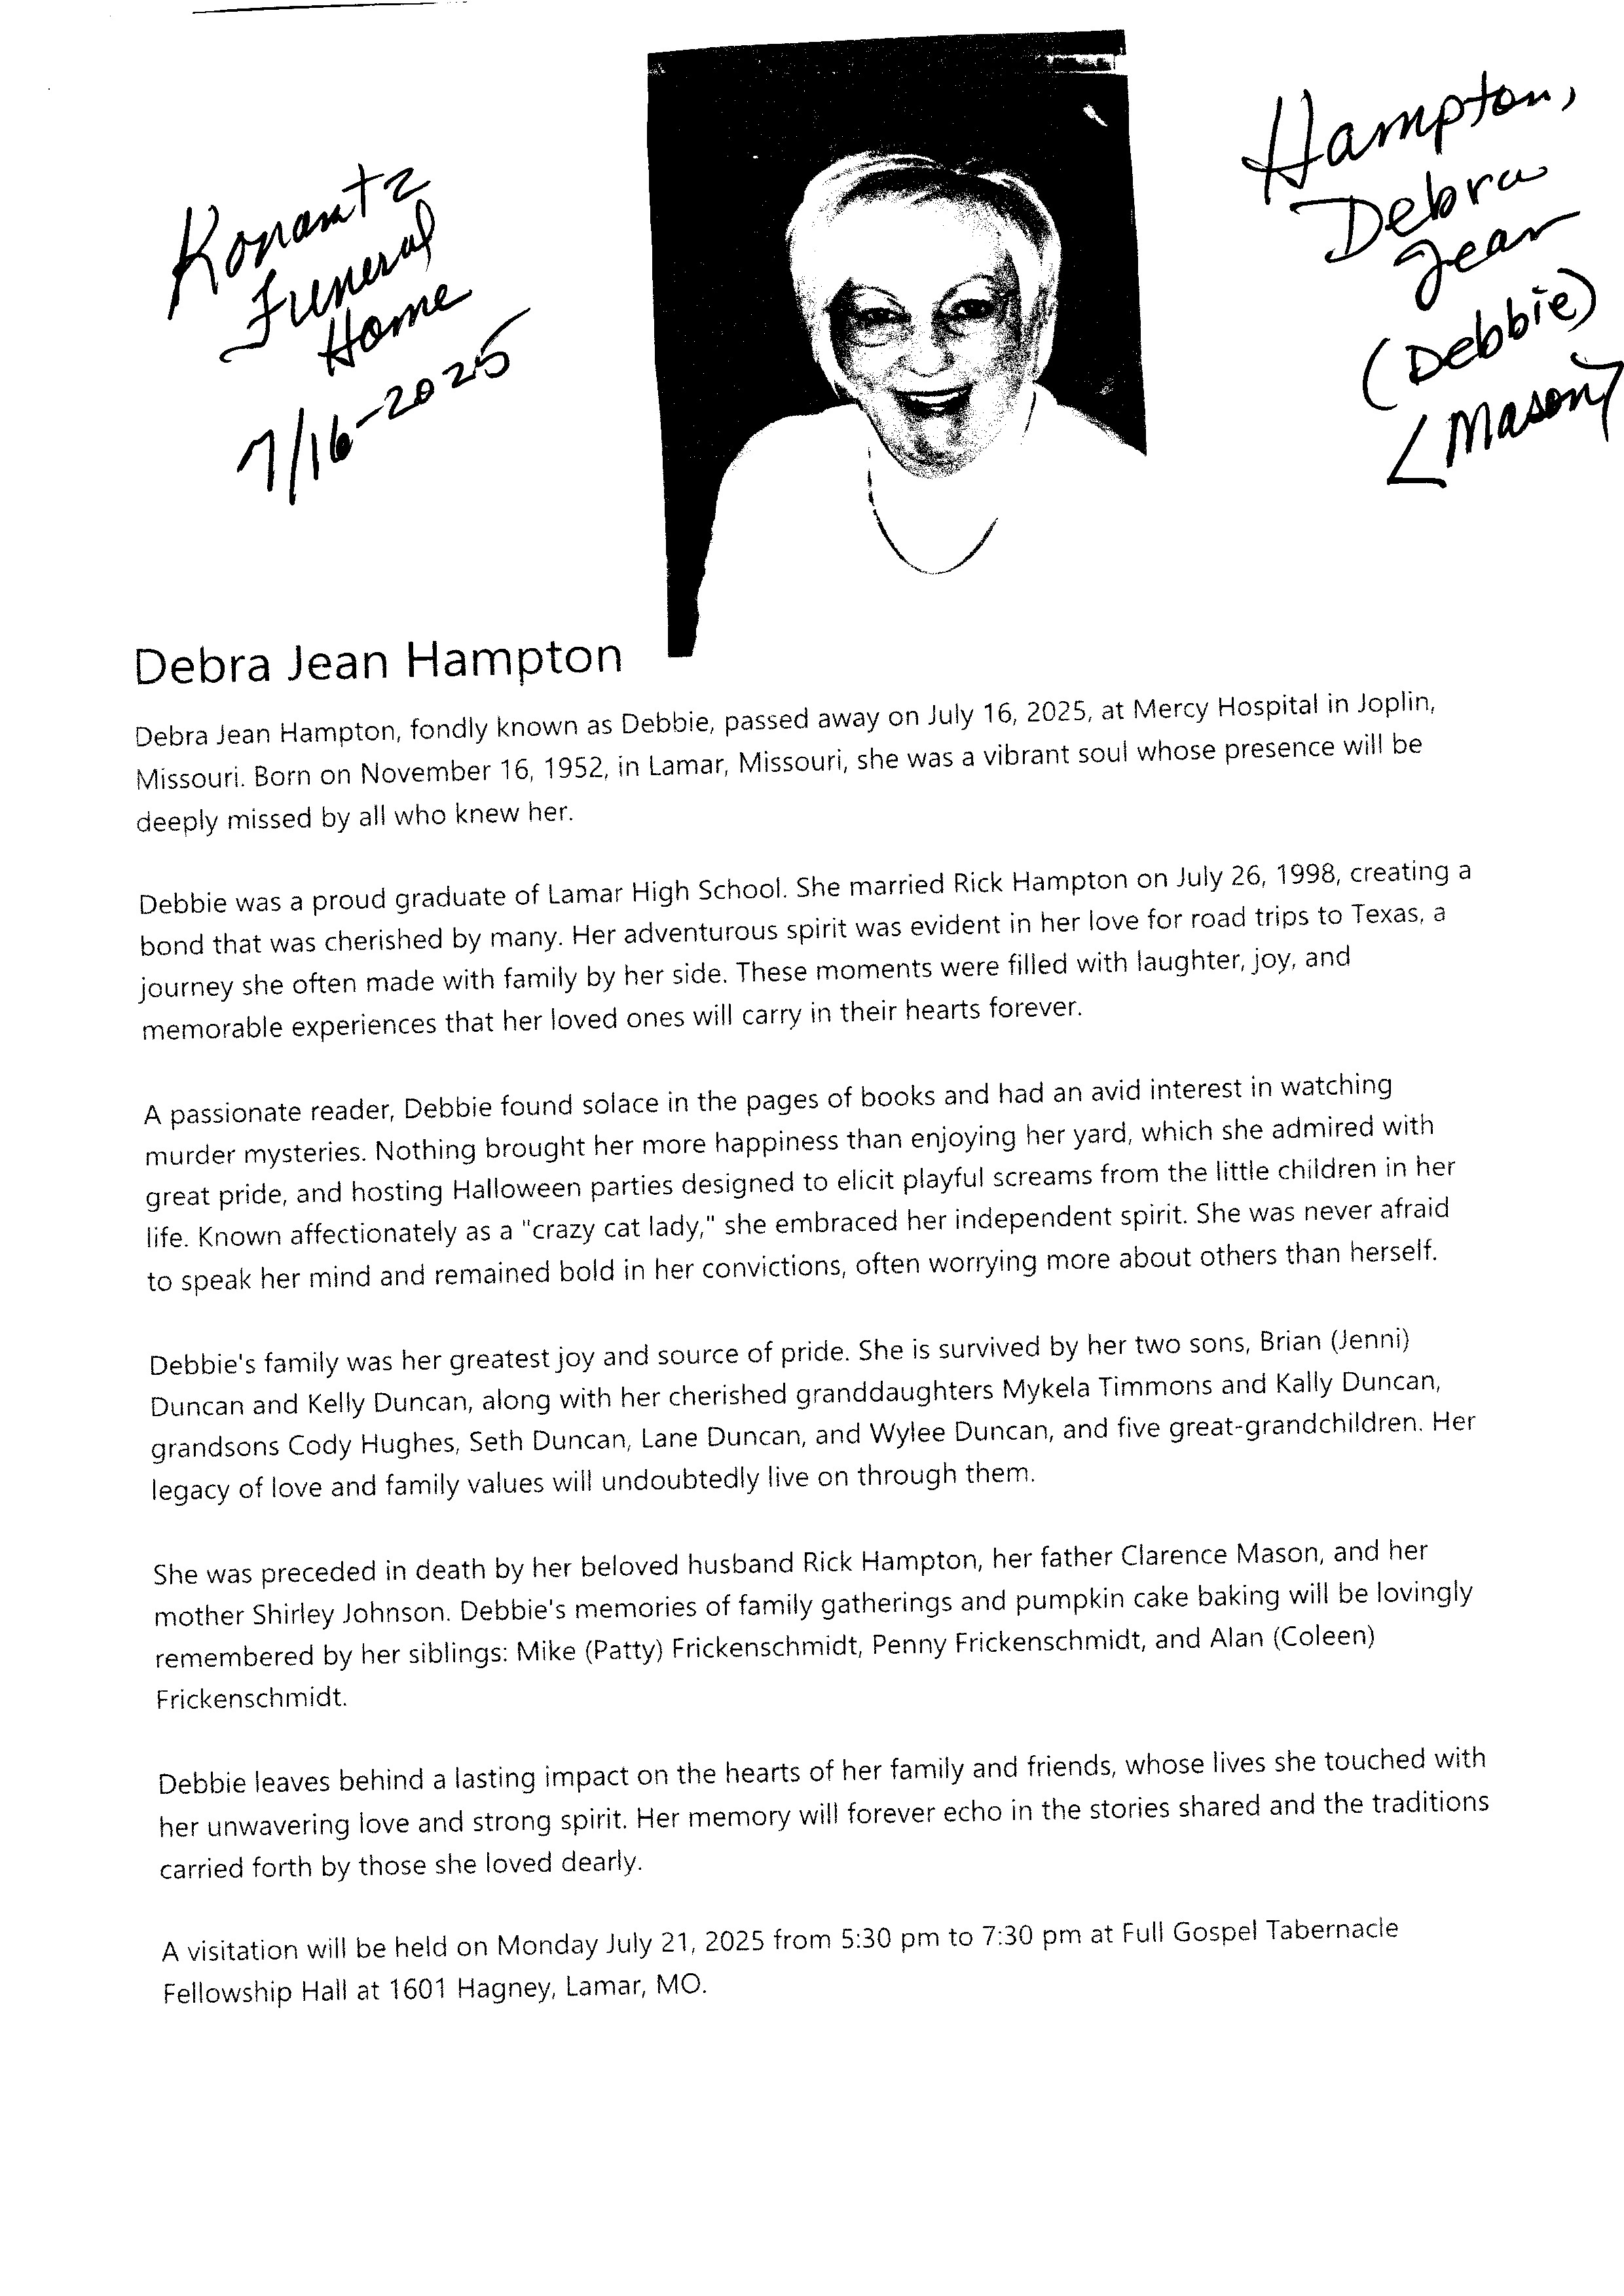 Konantz
Funeral
Home
7/16-2025
Hampton,
Debra
Jean
(Debbie)
<Mason>
Debra Jean Hampton
Debra Jean Hampton, fondly known as Debbie, passed away on July 16, 2025, at Mercy Hospital in Joplin,
Missouri. Born on November 16, 1952, in Lamar, Missouri, she was a vibrant soul whose presence will be
deeply missed by all who knew her.
Debbie was a proud graduate of Lamar High School. She married Rick Hampton on July 26, 1998, creating a
bond that was cherished by many. Her adventurous spirit was evident in her love for road trips to Texas, a
journey she often made with family by her side. These moments were filled with laughter, joy, and
memorable experiences that her loved ones will carry in their hearts forever.
A passionate reader, Debbie found solace in the pages of books and had an avid interest in watching
murder mysteries. Nothing brought her more happiness than enjoying her yard, which she admired with
great pride, and hosting Halloween parties designed to elicit playful screams from the little children in her
life. Known affectionately as a "crazy cat lady," she embraced her independent spirit. She was never afraid
to speak her mind and remained bold in her convictions, often worrying more about others than herself.
Debbie's family was her greatest joy and source of pride. She is survived by her two sons, Brian (Jenni)
Duncan and Kelly Duncan, along with her cherished granddaughters Mykela Timmons and Kally Duncan,
grandsons Cody Hughes, Seth Duncan, Lane Duncan, and Wylee Duncan, and five great-grandchildren. Her
legacy of love and family values will undoubtedly live on through them.
She was preceded in death by her beloved husband Rick Hampton, her father Clarence Mason, and her
mother Shirley Johnson. Debbie's memories of family gatherings and pumpkin cake baking will be lovingly
remembered by her siblings: Mike (Patty) Frickenschmidt, Penny Frickenschmidt, and Alan (Coleen)
Frickenschmidt.
Debbie leaves behind a lasting impact on the hearts of her family and friends, whose lives she touched with
her unwavering love and strong spirit. Her memory will forever echo in the stories shared and the traditions
carried forth by those she loved dearly.
A visitation will be held on Monday July 21, 2025 from 5:30 pm to 7:30 pm at Full Gospel Tabernacle
Fellowship Hall at 1601 Hagney, Lamar, MO.